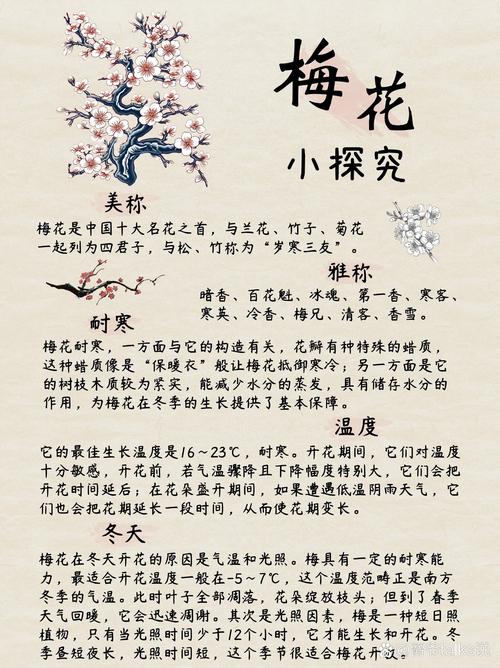 梅花
小探究
美称
梅花是中国十大名花之首，与兰花、竹子、菊花
一起列为四君子，与松、竹称为“岁寒三友”。
雅称
暗香、百花魁、冰魂、第一香、寒客、
寒英、冷香、梅兄、清客、香雪。
耐寒
梅花耐寒，一方面与它的构造有关，花瓣有种特殊的蜡质，
这种蜡质像是“保暖衣”般让梅花抵御寒冷；另一方面是它
的树枝木质较为紧实，能减少水分的蒸发，具有储存水分的
作用，为梅花在冬季的生长提供了基本保障。
温度
它的最佳生长温度是16~23℃，耐寒。开花期间，它们对温度
十分敏感，开花前，若气温骤降且下降幅度特别大，它们会把
开花时间延后；在花朵盛开期间，如果遭遇低温阴雨天气，它
们也会把花期延长一段时间，从而使花期变长。
冬天
梅花在冬天开花的原因是气温和光照。梅具有一定的耐寒能
力，最适合开花温度一般在-5~7℃，这个温度范畴正是南方
冬季的气温。此时叶子全部凋落，花朵绽放枝头；但到了春季
天气回暖，它会迅速凋谢。其次是光照因素，梅是一种短日照
植物，只有当光照时间少于12个小时，它才能生长和开花。冬
季昼短夜长，光照时间短，这个季节很适合梅花开放。